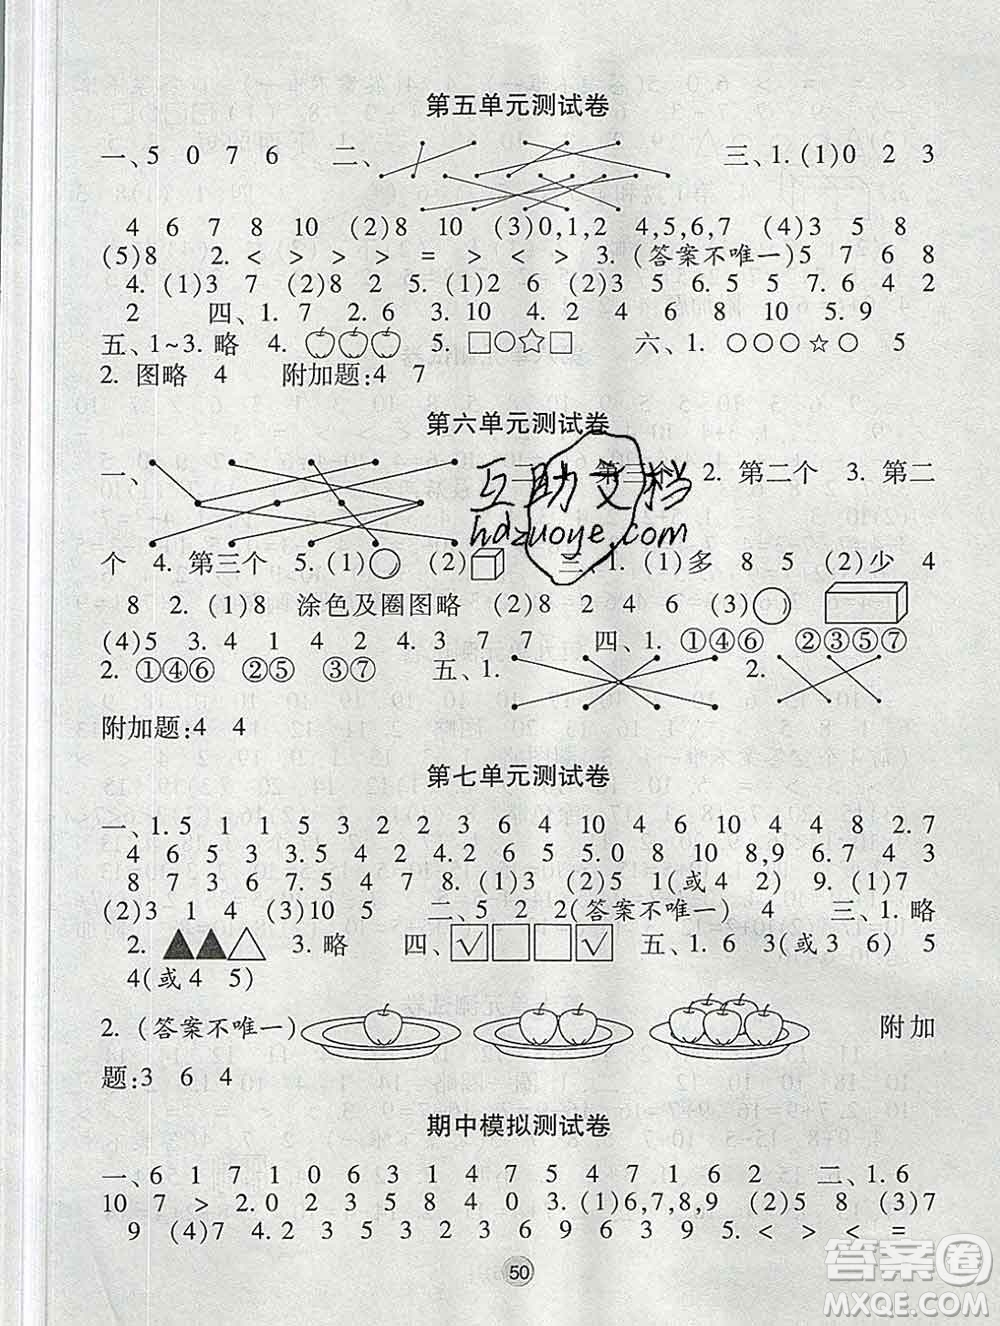 第五单元测试卷
一、5 0 7 6 二、 三、1. (1)0 2 3
4 6 7 8 10 (2)8 10 (3)0,1,2 4,5,6,7 (4)3 5 8
(5)8 2. < > > > = > < > 3. (答案不唯一)5 7 6 8
4. (1)3 7 (2)8 2 5 (1)2 6 (2)3 5 6. 5 5 7. 6 4 2
2 四、1. 7 2. 6 3. 10 4. 2 8 10 5. 9
五、1~3. 略 4. 5. □○☆□ 六、1. ○○○☆○ 5
2. 图略 4 附加题:4 7
第六单元测试卷
一、 二、 第三个 2. 第二个 3. 第二
个 4. 第三个 5. (1)○ (2) 三、1. (1)多 8 5 (2)少 4
8 2. (1)8 涂色及圈图略 (2)8 2 4 6 (3)○
(4)5 3. 1 4 8 4. 3 7 7 四、1. ①④⑥ ②③⑤⑦
2. ①④⑥ ②⑤ ③⑦ 五、1. 2.
附加题:4 4
第七单元测试卷
一、1. 5 1 1 5 3 2 2 3 6 4 10 4 6 10 4 4 8 2. 7
4 6 5 3 3. 5 2 4. 2 6 5 5. 0 8 10 8,9 6. 7 4 3
8 7 3 6 7. 5 4 7 8. (1)3 (2)5 1(或4 2) 9. (1)7
(2)3 1 4 (3)10 5 二、5 2 2(答案不唯一) 4 三、1. 略
2. ▲▲△ 3. 略 四、 五、1. 6 3(或3 6) 5
4(或4 5)
2. (答案不唯一) 附加
题:3 6 4
期中模拟测试卷
一、6 1 7 1 0 6 3 1 4 7 5 4 7 1 6 2 二、1. 6
10 7 > 2. 0 2 3 5 8 4 0 3. (1)6,7,8,9 (2)5 8 (3)7
9 (4)7 4. 2 3 5 3 2 3 6 9 6 3 9 5. < > < =
50
互助文档
hdzuoye.com
答案圈
MXQE.COM